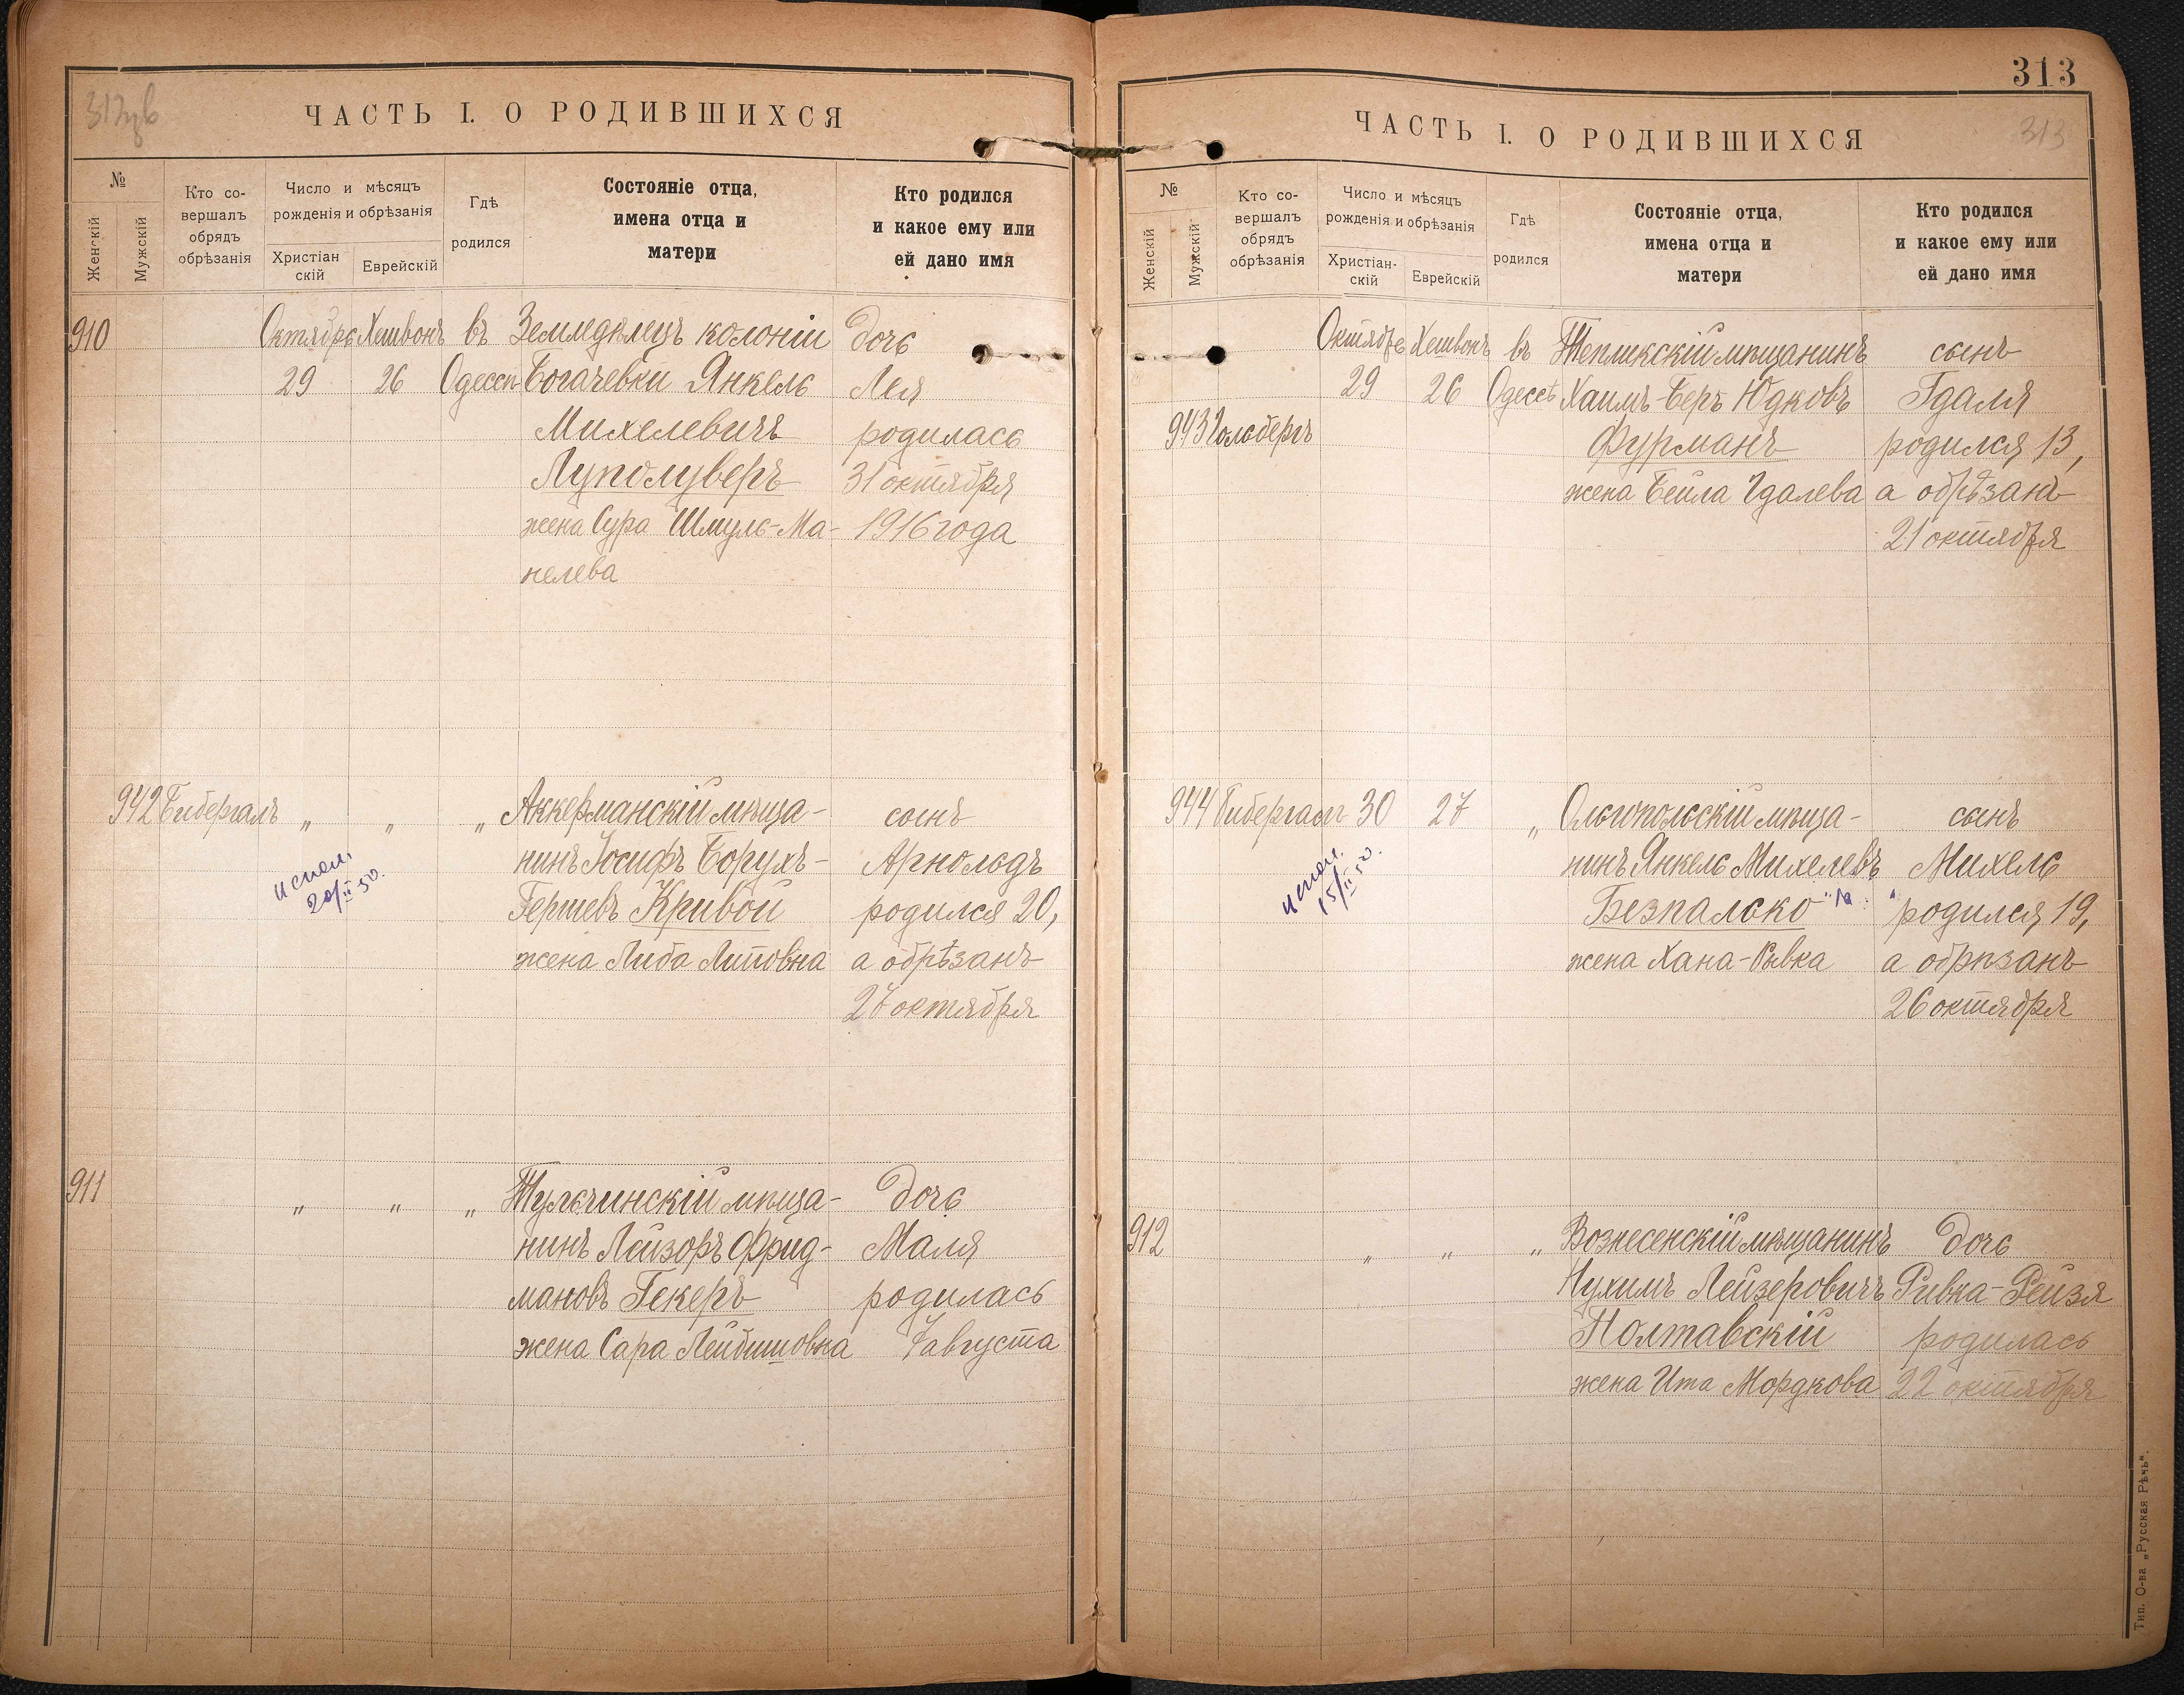 ЧАСТЬ I. О РОДИВШИХСЯ
№
Женскій
Мужскій
Кто со-
вершалъ
обрядъ
обрѣзанія
Число и мѣсяцъ
рожденія и обрѣзанія
Христіан
скій
Еврейскій
Гдѣ
родился
Состояніе отца,
имена отца и
матери
Кто родился
и какое ему или
ей дано имя
910 Октябрь Хешвонъ въ Земледѣлецъ колоніи дочь
29 26 Одессѣ Богачевки Янкель Лея
Михелевичъ родилась
Луполуверъ 31 октября
жена Сура Шмуль-Ма- 1916 года
нелева
942 Бибергалъ „ „ „ Аккерманскій мѣща- сынъ
нинъ Іосифъ Борухъ- Арнольдъ
испол. 20/II 50.
Гершевъ Кривой родился 20,
жена Либа Литовна а обрѣзанъ
27 октября
911 „ „ „ Тульчинскій мѣща- дочь
нинъ Лейзоръ Фрид- Маля
мановъ Гекеръ родилась
жена Сара Лейбишовна 7 августа
313
ЧАСТЬ I. О РОДИВШИХСЯ
313
№
Женскій
Мужскій
Кто со-
вершалъ
обрядъ
обрѣзанія
Число и мѣсяцъ
рожденія и обрѣзанія
Христіан-
скій
Еврейскій
Гдѣ
родился
Состояніе отца,
имена отца и
матери
Кто родился
и какое ему или
ей дано имя
Октябрь Хешвонъ въ Тепликскій мѣщанинъ сынъ
29 26 Одессѣ Хаимъ-Беръ Юдковъ Гдаля
943 Гольбергъ Фурманъ родился 13,
жена Бейла Гдалева а обрѣзанъ
21 октября
944 Бибергалъ 30 27 „ Ольгопольскій мѣща- сынъ
нинъ Янкель Михелевъ Михель
испол. 15/II 50.
Безпалько родился 19,
жена Хана-Рывка а обрѣзанъ
26 октября
912 „ „ „ Вознесенскій мѣщанинъ дочь
Нухимъ Лейзеровичъ Ривка-Рейзя
Полтавскій родилась
жена Ита Мордкова 22 октября
Тип. О-ва „Русская Рѣчь".